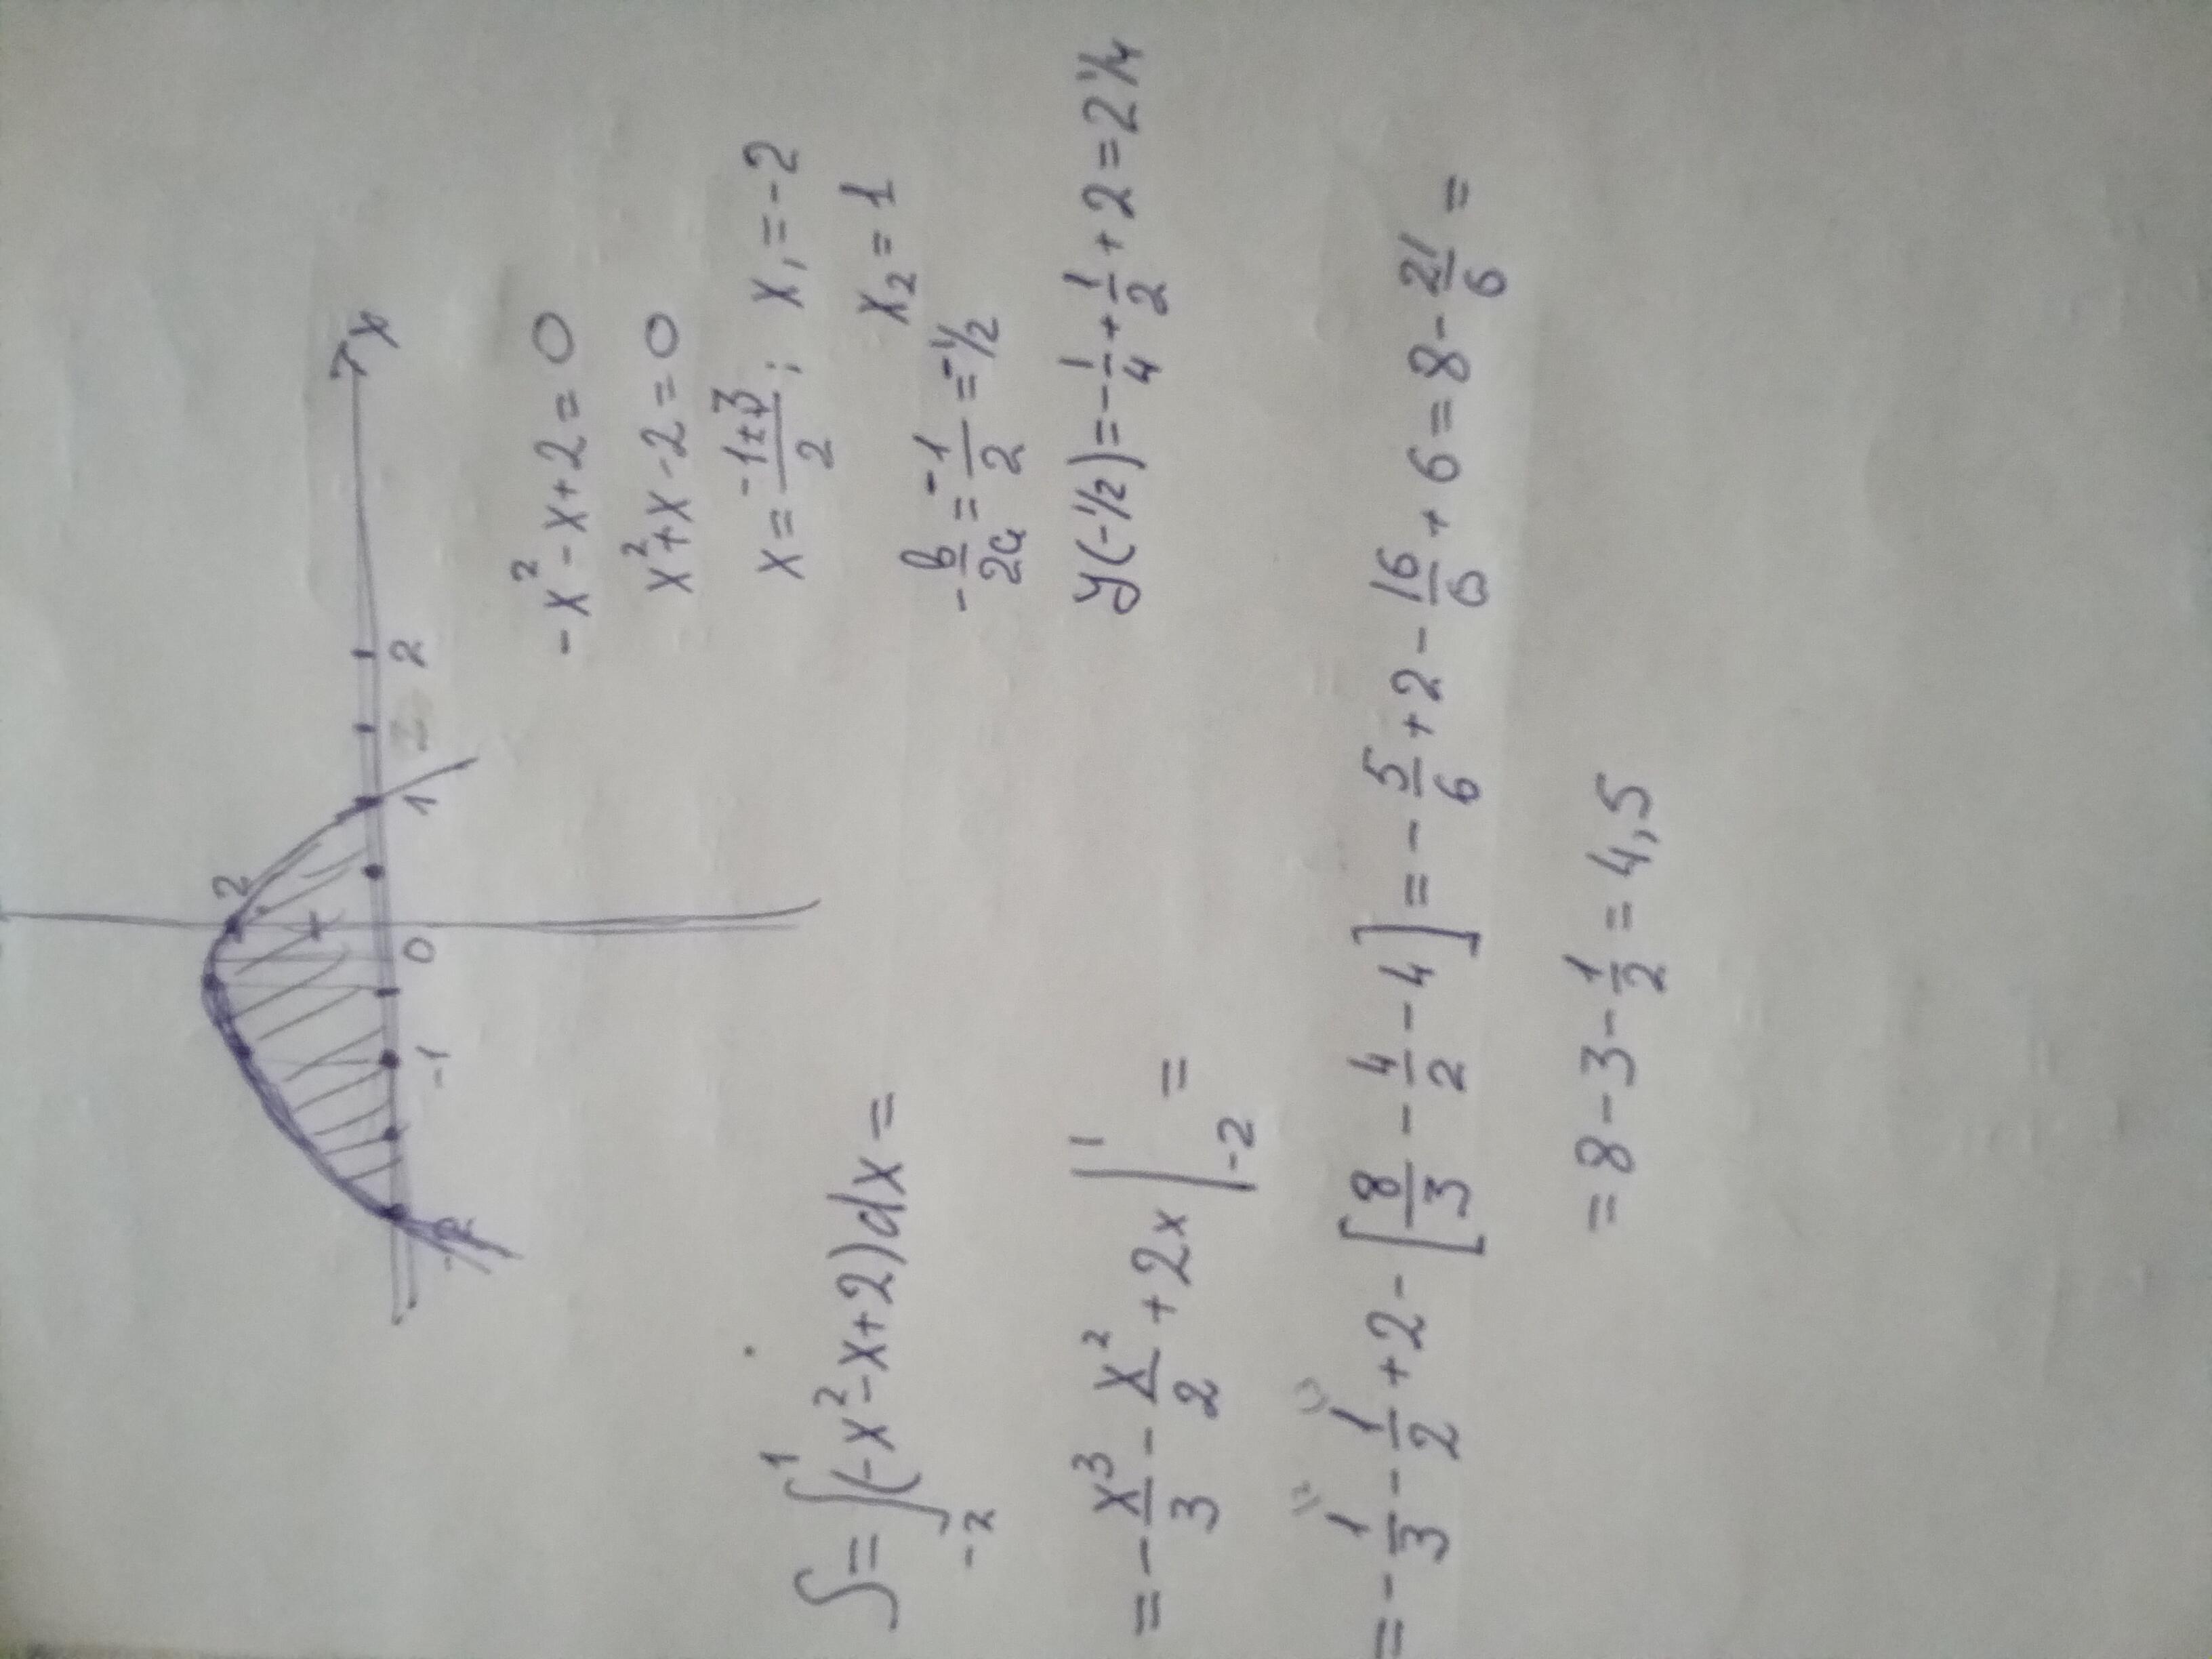 x
2
-2 -1 0 1 2
-x²-x+2=0
x²+x-2=0
x=(-1±3)/2; x₁=-2
x₂=1
-b/2a=-1/2=-1/2
y(-1/2)=-1/4+1/2+2=2 1/4
S=∫₋₂¹(-x²-x+2)dx=
=-x³/3-x²/2+2x|₋₂¹=
=-1/3-1/2+2-[8/3-4/2-4]=-5/6+2-16/6+6=8-21/6=
=8-3-1/2=4,5